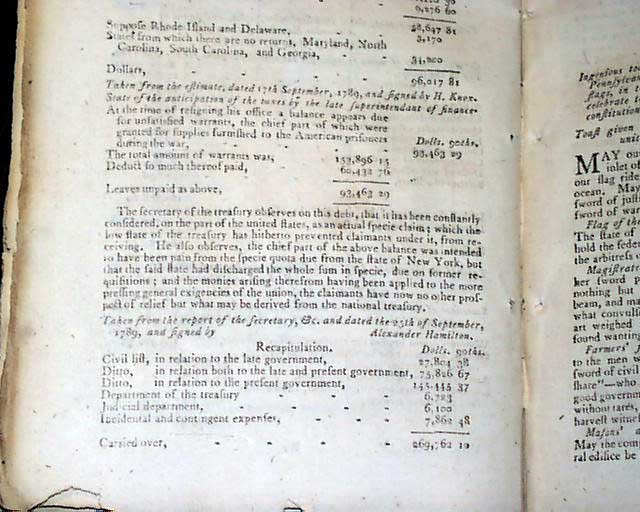 9,276 60
Suppose Rhode Island and Delaware, - - 28,647 81
States from which there are no returns, Maryland, North 3,170
Carolina, South Carolina, and Georgia, - -
34,200
Dollars, - - - - 96,017 81
Taken from the estimate, dated 17th September, 1789, and signed by H. Knox.
State of the anticipation of the taxes by the late superintendant of finance.
At the time of resigning his office a balance appears due
for unsatisfied warrants, the chief part of which were
granted for supplies furnished to the American prisoners Dolls. 90ths.
during the war, - - - - 93,463 29
The total amount of warrants was, - 153,896 15
Deduct so much thereof paid, - - 60,432 76
Leaves unpaid as above, - - 93,463 29
The secretary of the treasury observes on this debt, that it has been constantly
considered, on the part of the united states, as an actual specie claim; which the
low state of the treasury has hitherto prevented claimants under it, from re-
ceiving. He also observes, the chief part of the above balance was intended
to have been paid from the specie quota due from the state of New York, but
that the said state had discharged the whole sum in specie, due on former re-
quisitions; and the monies arising therefrom having been applied to the more
pressing general exigencies of the union, the claimants have now no other pros-
pect of relief but what may be derived from the national treasury.
Taken from the report of the secretary, &c. and dated the 25th of September,
1789, and signed by Alexander Hamilton.
Recapitulation. Dolls. 90ths.
Civil list, in relation to the late government, - 27,804 38
Ditto, in relation both to the late and present government, 75,826 67
Ditto, in relation to the present government, - 145,445 37
Department of the treasury - - - 6,723
Judicial department, - - - - 6,100
Incidental and contingent expenses, - - - 7,862 48
Carried over, - - - - 269,762 10
Ingenious toa
Pennsylva
flags, in t
celebrate t
constitution
Toast given
unite
MAY ou
inlet of
our flag ride
ocean. May
sword of justi
sword of war
Flag of the
The state of
hold the federa
the arbitress o
Magistrat
ker sword p
nothing but
beam, and ma
what convulsi
art weighed
found wanting
Farmers' f
to the men w
sword of civil
share"—who
good governm
without tares,
harvest witne
Masons' a
May the comp
ral edifice be